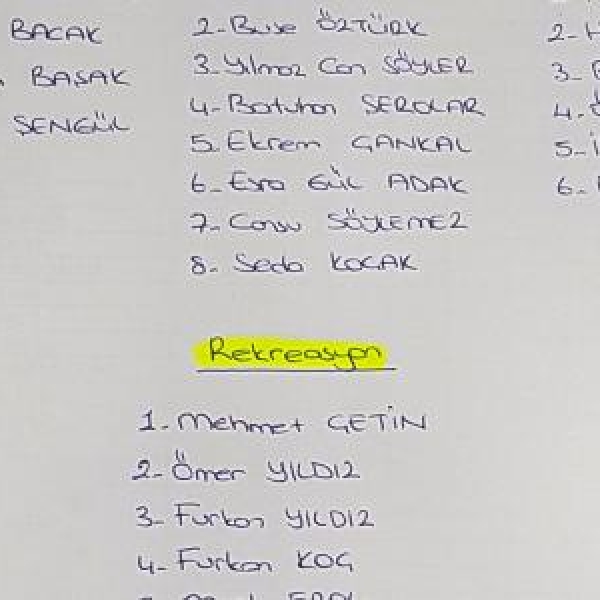 BACAK
BAŞAK
ŞENGÜL
2-Buse ÖZTÜRK
3-Yılmaz Can SÖYLER
4-Batuhan SEROLAR
5-Ekrem ÇANKAL
6-Esra GÜL ADAK
7-Cansu SÖYLEMEZ
8-Seda KOÇAK
2-
3-
4-
5-
6-
Rekreasyon
1-Mehmet ÇETİN
2-Ömer YILDIZ
3-Furkan YILDIZ
4-Furkan KOÇ